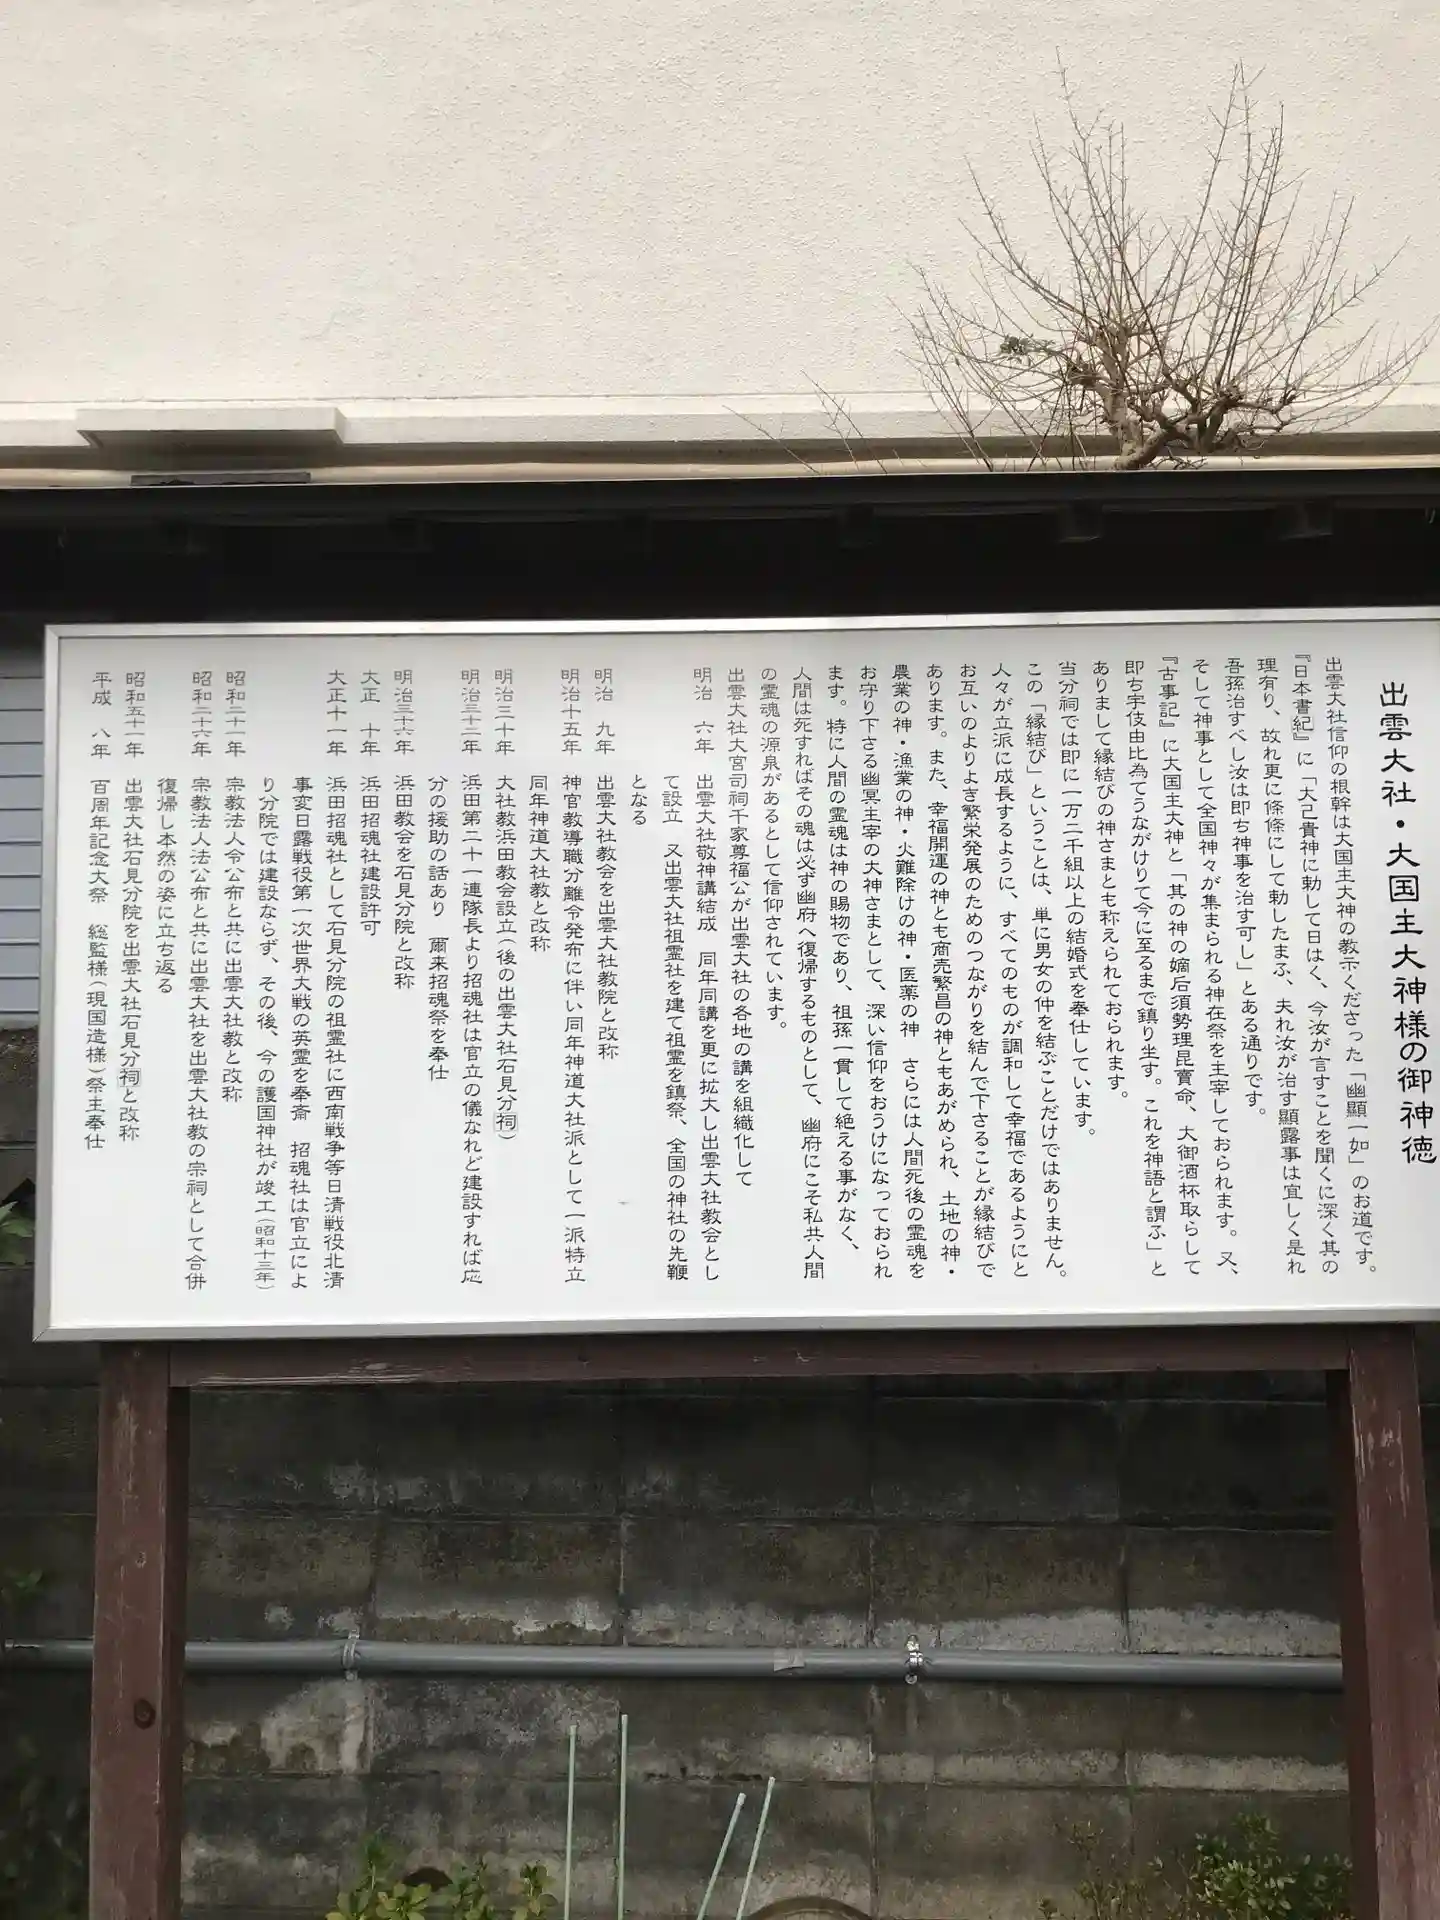 出雲大社・大国主大神様の御神徳
出雲大社信仰の根幹は大国主大神の教示くださった「幽顯一如」のお道です。
『日本書紀』に「大己貴神に勅して曰はく、今汝が言すことを聞くに深く其の
理有り、故れ更に條條にして勅したまふ、夫れ汝が治す顯露事は宜しく是れ
吾孫治すべし汝は即ち神事を治す可し」とある通りです。
そして神事として全国神々が集まられる神在祭を主宰しておられます。又、
『古事記』に大国主大神と「其の神の嫡后須勢理昆賣命、大御酒杯取らして
即ち宇伎由比為てうながけりて今に至るまで鎮り坐す。これを神語と謂ふ」と
ありまして縁結びの神さまとも称えられておられます。
当分祠では即に一万二千組以上の結婚式を奉仕しています。
この「縁結び」ということは、単に男女の仲を結ぶことだけではありません。
人々が立派に成長するように、すべてのものが調和して幸福であるようにと
お互いのよりよき繁栄発展のためのつながりを結んで下さることが縁結びで
あります。また、幸福開運の神とも商売繁昌の神ともあがめられ、土地の神・
農業の神・漁業の神・火難除けの神・医薬の神　さらには人間死後の霊魂を
お守り下さる幽冥主宰の大神さまとして、深い信仰をおうけになっておられ
ます。特に人間の霊魂は神の賜物であり、祖孫一貫して絶える事がなく、
人間は死すればその魂は必ず幽府へ復帰するものとして、幽府にこそ私共人間
の霊魂の源泉があるとして信仰されています。
出雲大社大宮司祠千家尊福公が出雲大社の各地の講を組織化して
明治　六年　出雲大社敬神講結成　同年同講を更に拡大し出雲大社教会とし
て設立　又出雲大社祖霊社を建て祖霊を鎮祭、全国の神社の先鞭
となる
明治　九年　出雲大社教会を出雲大社教院と改称
明治十五年　神官教導職分離令発布に伴い同年神道大社派として一派特立
同年神道大社教と改称
明治三十年　大社教浜田教会設立（後の出雲大社石見分祠）
明治三十二年　浜田第二十一連隊長より招魂社は官立の儀なれど建設すれば応
分の援助の話あり　爾来招魂祭を奉仕
明治三十六年　浜田教会を石見分院と改称
大正　十年　浜田招魂社建設許可
大正十一年　浜田招魂社として石見分院の祖霊社に西南戦争等日清戦役北清
事変日露戦役第一次世界大戦の英霊を奉斎　招魂社は官立によ
り分院では建設ならず、その後、今の護国神社が竣工（昭和十三年）
昭和二十一年　宗教法人令公布と共に出雲大社教と改称
昭和二十六年　宗教法人法公布と共に出雲大社を出雲大社教の宗祠として合併
復帰し本然の姿に立ち返る
昭和五十一年　出雲大社石見分院を出雲大社石見分祠と改称
平成　八年　百周年記念大祭　総監様（現国造様）祭主奉仕